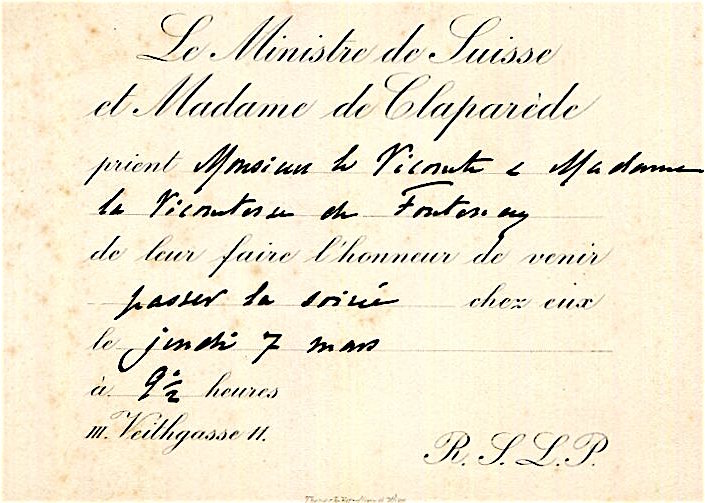 Le Ministre de Suisse
et Madame de Claparède
prient Monsieur le Vicomte & Madame
la Vicomtesse de Fontenay
de leur faire l'honneur de venir
passer la soirée chez eux
le jeudi 7 mars
à 9 ½ heures
III. Veithgasse 11.
R. S. L. P.